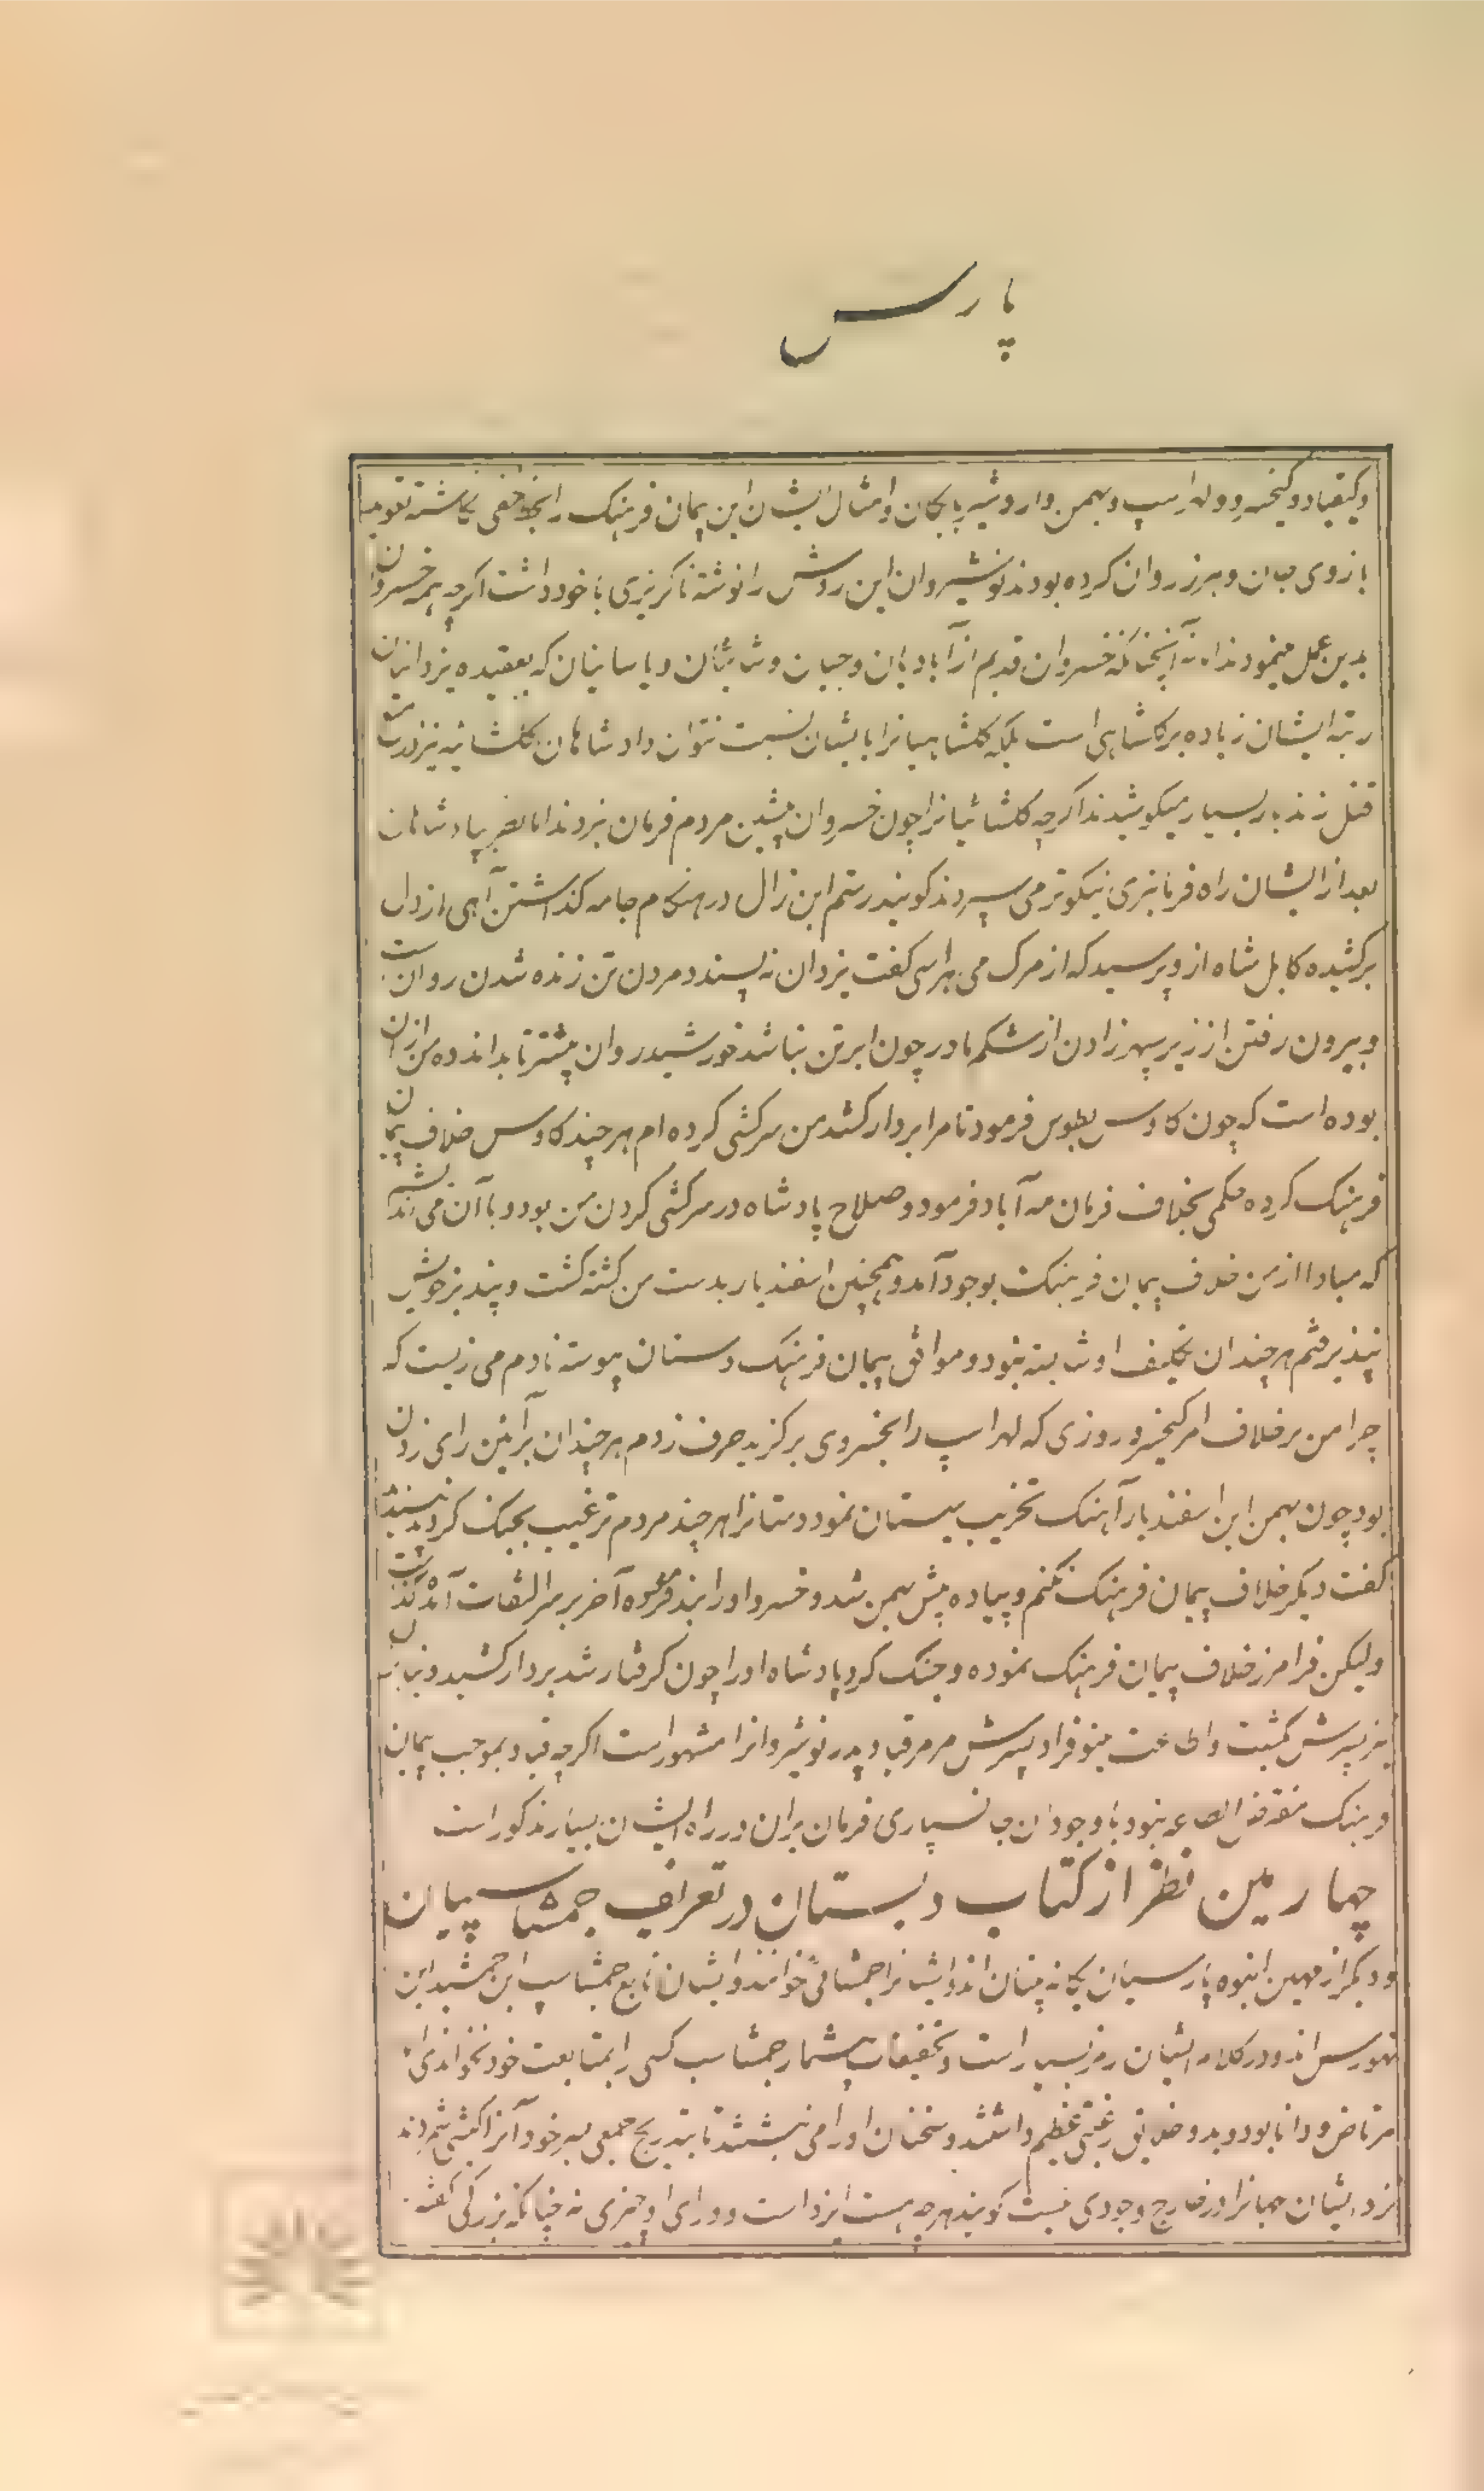 پارس
و کیقباد و کیخسرو و لهراسپ و بهمن و اردشیر بابکان و امثال ایشان این پیمان فرهنک را بخط خفی نکاشته تعویذ
بازوی جان و هرز روان کرده بودند نوشیروان این روش را نوشته ناکزیری با خود داشت اکرچه همه خسروان
بدین عمل مینمودند اما نه آنچنانکه خسروان قدیم از آبادیان و جیان و شائیان و یاسائیان که بعقیده یزدانیان
رتبه ایشان زیاده بر کلشاهی است بلکه کلشاهیانرا با ایشان نسبت نتوان داد شاهان کلشائیه نیز در
قتل زندبار بسیار میکوشیدند اکرچه کلشائیانرا چون خسروان پیشین مردم فرمان نبردند اما بضر پادشاهان
بعد از ایشان راه فرمانبری نیکوتر می سپردند کویند رستم ابن زال در هنکام جامه کذاشتن آهی از دل
برکشیده کابل شاه ازو پرسید که از مرک می هراسی کفت یزدان نه پسندد مردن تن زنده شدن روانست
و بیرون رفتن از زیر سپهر زادن از شکم مادر چون ابر تن نباشد خورشید روان بیشتر تابد اندوه من از آن
بوده است که چون کاوس بطوس فرمود تا مرا بردار کشد من سرکشی کرده ام هرچند کاوس خلاف پیمان
فرهنک کرده حکمی بخلاف فرمان مه آباد فرمود و صلاح پادشاه در سرکشی کردن من بود و با آن می اندیشم
که مبادا از من خلاف پیمان فرهنک بوجود آمد و همچنین اسفندیار بدست من کشته کشت و پند پذر خویش
نپذیرفتم هرچند آن تکلیف او شایسته نبود و موافق پیمان فرهنک دستان پیوسته نادم می زیست که
چرا من برخلاف امر کیخسرو روزی که لهراسپ را بخسروی برکزید حرف زدم هرچند آن بر آئین رای زدن
بود چون بهمن ابن اسفندیار آهنک تخریب سیستان نمود دستانرا هرچند مردم ترغیب بجنک کردند نپسندید
کفت دیکر خلاف پیمان فرهنک نکنم و پیاده پیش بهمن شد و خسرو او را بند فرموده آخر بر سر التفات آمد کذاشت
ولیکن فرامرز خلاف پیمان فرهنک نموده و جنک کرد پادشاه او را چون کرفتار شد بردار کشید و
نیز پسرش کشت و اطاعت سوفرا و پسرش مر قباد پدر نوشیروانرا مشهور است اکرچه قباد بموجب پیمان
فرهنک نبود با وجود آن جانسپاری فرمان بران در راه ایشان بسیار مذکور است
چهارمین نظر از کتاب دبستان در تعریف جمشاسپیان
و دیکر از مهین انبوه پارسیان یکانه بینان اند و ایشانرا جمشاسپی خوانند و ایشان تابع جمشاسپ ابن جمشید ابن
تهمورس اند و در کلام ایشان رمز بسیار است و تحقیقات بیشمار جمشاسب کسی را بمتابعت خود نخواندی
مرتاض و دانا بود و بدو خلایق رغبتی عظیم داشتند و سخنان او را می نبشتند تا بتدریج جمعی بمیر خود آنرا کیش شمردند
نزد ایشان جهانرا در خارج وجودی نیست کویند هرچه هست ایزد است و ورای او چیزی نه چنانکه بزرکی کفته